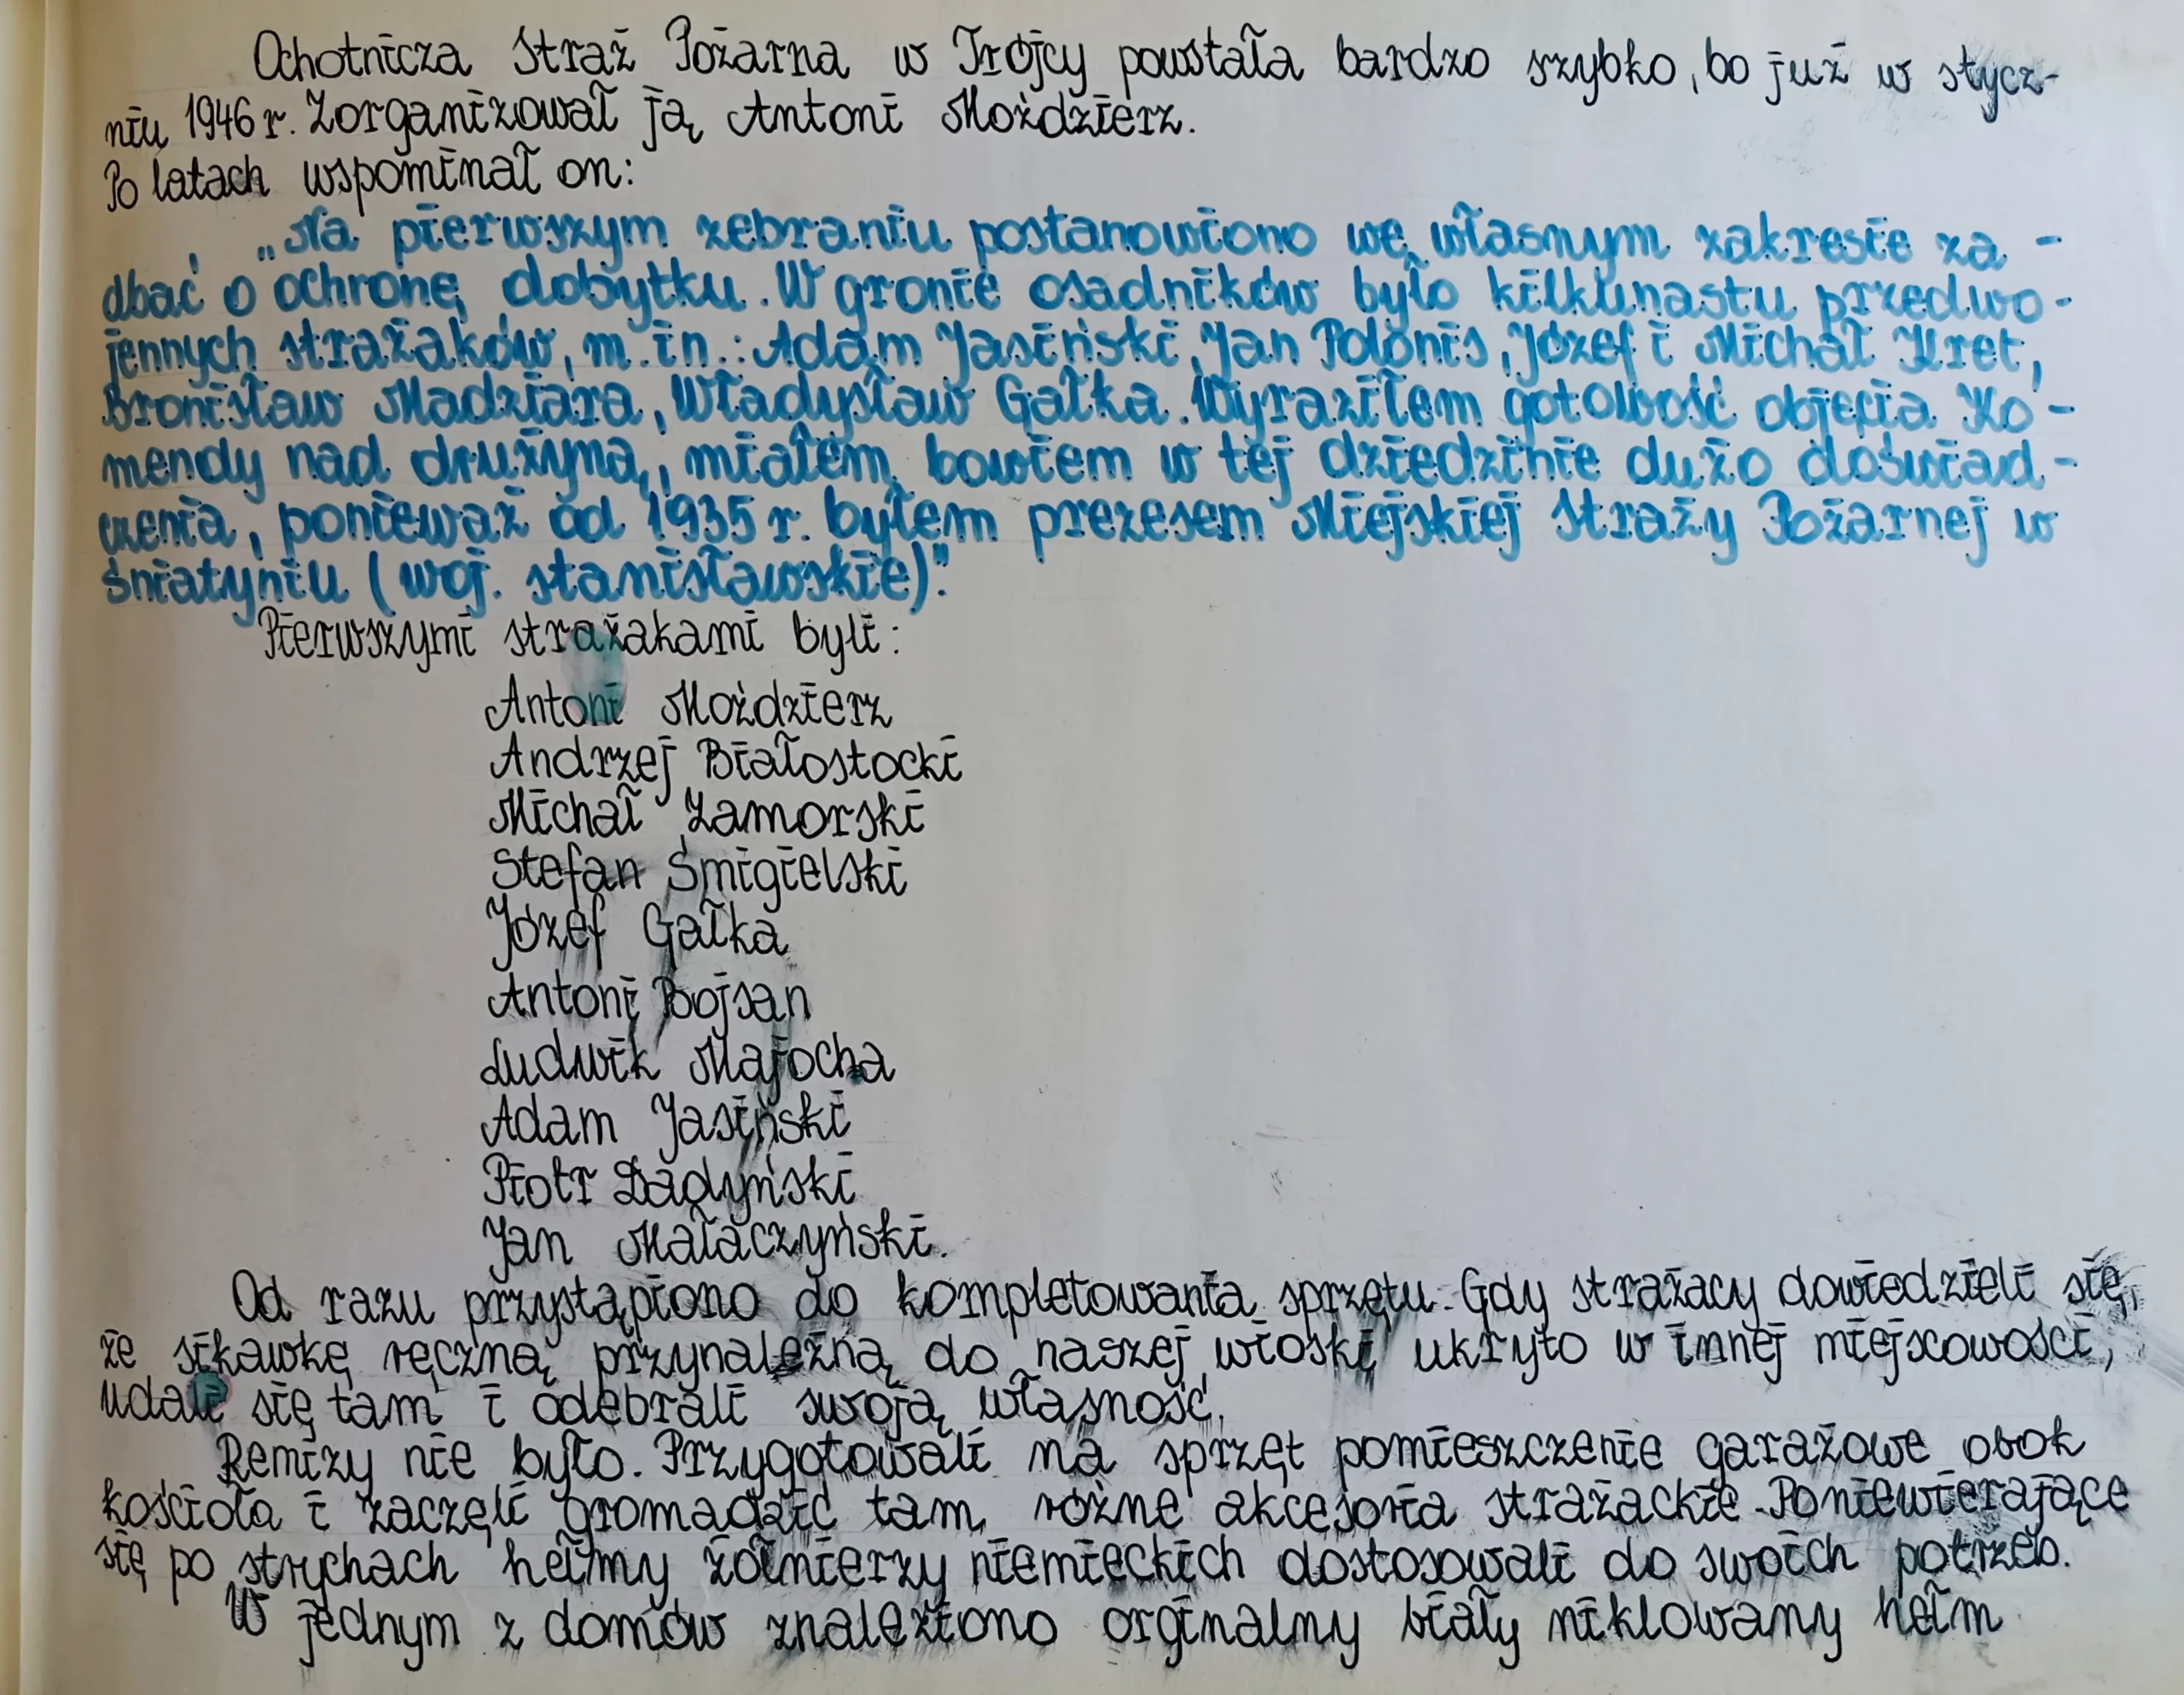 Ochotnicza Straż Pożarna w Trójcy powstała bardzo szybko, bo już w stycz-
niu 1946 r. Zorganizował ją Antoni Możdzierz.
Po latach wspominał on:
„Na pierwszym zebraniu postanowiono we własnym zakresie za -
dbać o ochronę dobytku. W gronie osadników było kilkunastu przedwo -
jennych strażaków, m. in.: Adam Jasiński, Jan Polonis, Józef i Michał Kret,
Bronisław Madziara, Władysław Gałka. Wyraziłem gotowość objęcia Ko -
mendy nad drużyną, miałem bowiem w tej dziedzinie dużo doświad -
czenia, ponieważ od 1935 r. byłem prezesem Miejskiej Straży Pożarnej w
Śniatyniu (woj. stanisławskie)".
Pierwszymi strażakami byli:
Antoni Możdzierz
Andrzej Białostocki
Michał Zamorski
Stefan Śmigielski
Józef Gałka
Antoni Bojsan
Ludwik Majocha
Adam Jasiński
Piotr Dądyński
Jan Małaczyński.
Od razu przystąpiono do kompletowania sprzętu. Gdy strażacy dowiedzieli się,
że sikawkę ręczną przynależną do naszej wioski ukryto w innej miejscowości,
udali się tam i odebrali swoją własność.
Remizy nie było. Przygotowali na sprzęt pomieszczenie garażowe obok
kościoła i zaczęli gromadzić tam różne akcesoria strażackie. Poniewierające
się po strychach hełmy żołnierzy niemieckich dostosowali do swoich potrzeb.
W jednym z domów znaleziono orginalny biały niklowany hełm